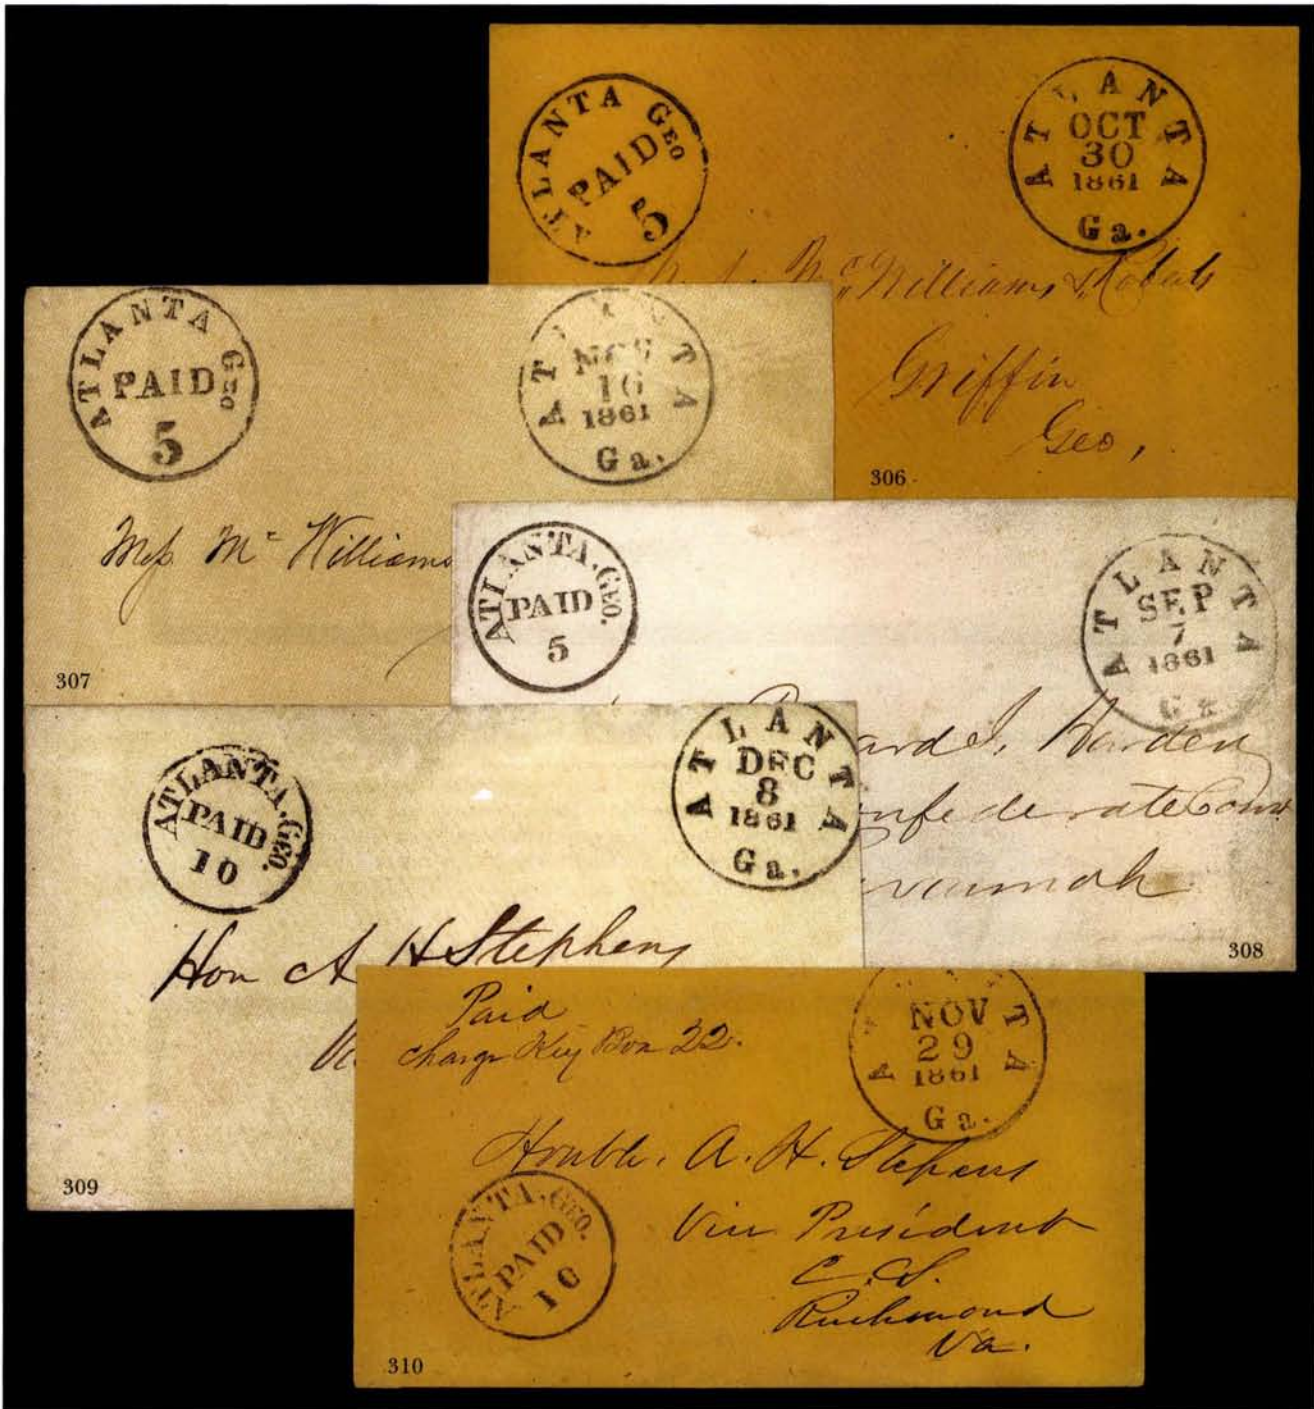 ATLANTA GEO
PAID
5
ATLANTA
OCT
30
1861
Ga.
McWilliams & Roberts
Griffin
Geo,
306
ATLANTA GEO
PAID
5
NOV
16
1861
Ga.
Mess Mc Williams
307
ATLANTA. GEO.
PAID
5
ATLANTA
SEP
7
1861
Ga
ard J. Harden
nfederate
308
ATLANTA. GEO.
PAID
10
ATLANTA
DEC
8
1861
Ga.
Hon A H Stephens
309
Paid
Charge Key Box 22.
NOV
29
1861
Ga.
Honble. A. H. Stephens
Vice President
C.S.
Richmond
Va.
ATLANTA. GEO.
PAID
10
310